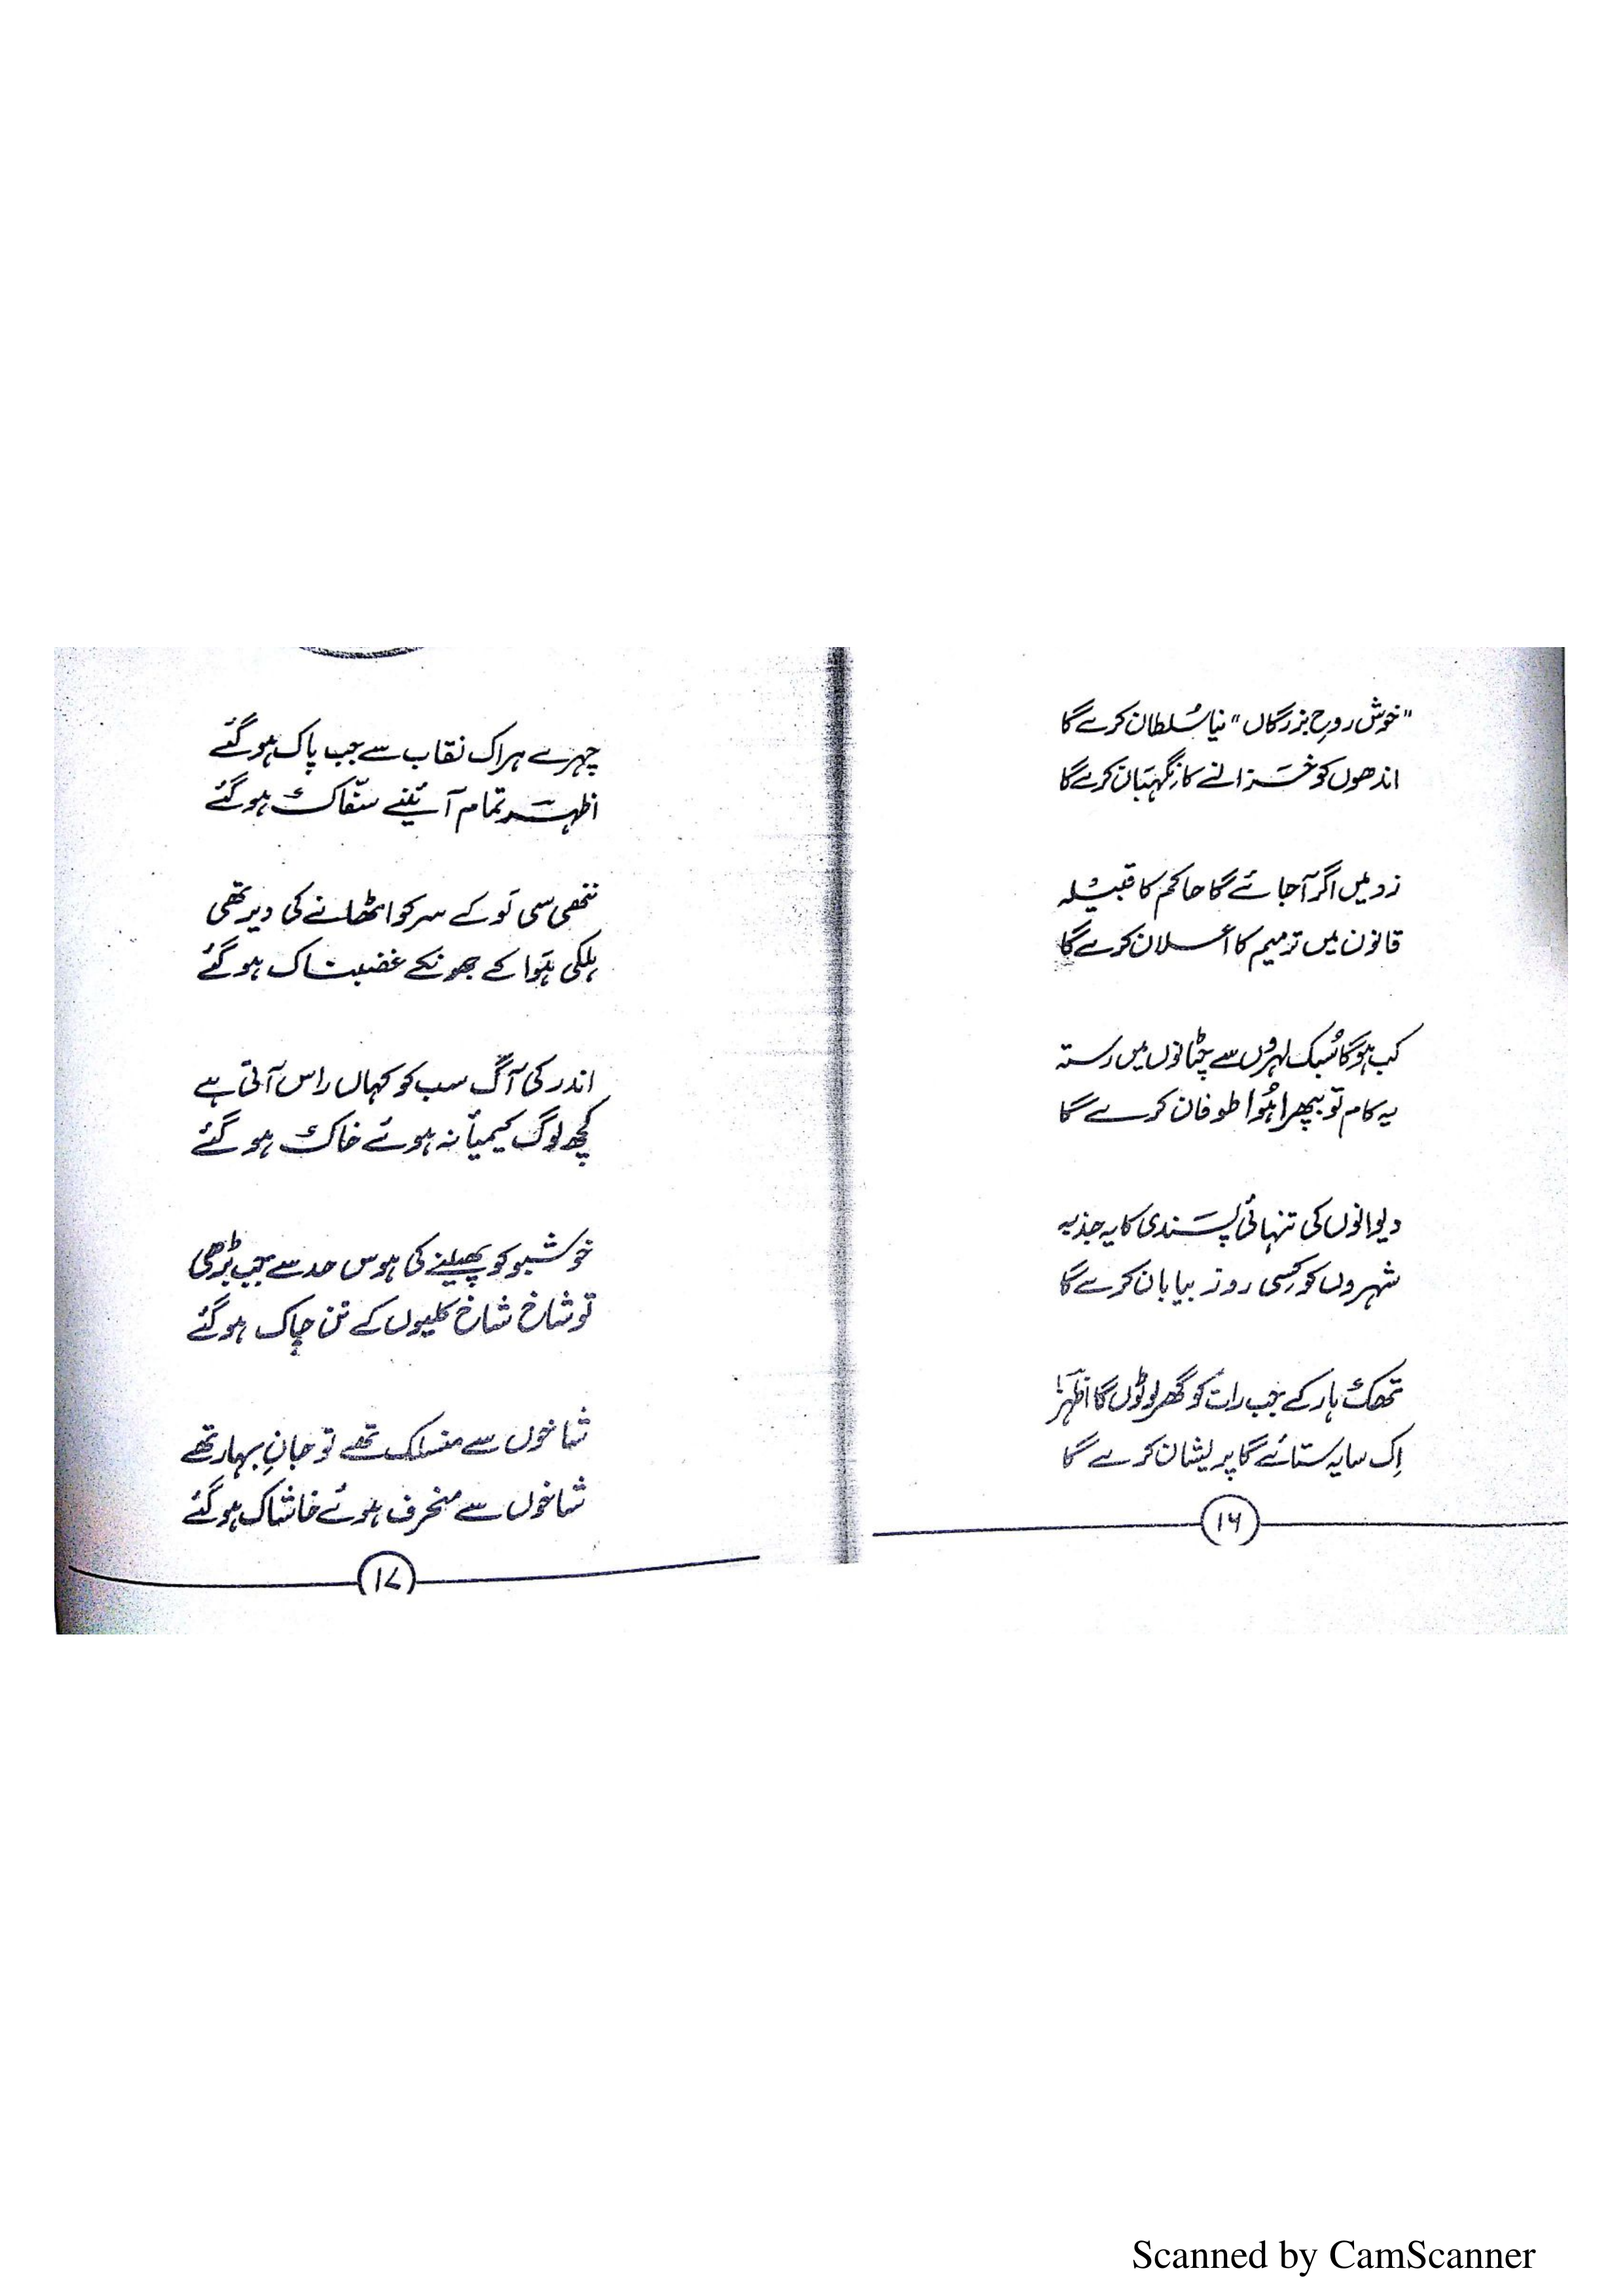 "خوش روحِ بزرگاں" نیا سُلطان کرے گا
اندھوں کو خَزانے کا نِگہبَان کرے گا
زد میں اگر آجائے گا حاکم کا قبیلہ
قانون میں ترمیم کا اعلان کرے گا
کب ہوگا سُبک لہروں سے چٹانوں میں رستہ
یہ کام تو بپھرا ہُوا طوفان کرے گا
دیوانوں کی تنہائی پسَندی کا یہ جذبہ
شہروں کو کِسی روز بیابان کرے گا
تھک ہار کے جب رات کو گھر لوٹوں گا اظہرؔ!
اِک سایہ ستائے گا پریشان کرے گا
۱۶
چہرے ہر اک نقاب سے جب پاک ہو گئے
اظہرؔ تمام آئینے سفّاک ہو گئے
ننھی سی لَو کے سر کو اٹھانے کی دیر تھی
ہلکی ہَوا کے جھونکے غضبناک ہو گئے
اندر کی آگ سب کو کہاں راس آتی ہے
کچھ لوگ کیمیا نہ ہوئے خاک ہو گئے
خوشبو کو پھیلنے کی ہوس حد سے جب بڑھی
تو شاخ شاخ کلیوں کے تن چاک ہو گئے
شاخوں سے منسلک تھے تو جانِ بہار تھے
شاخوں سے منحرف ہوئے خاشاک ہو گئے
۱۷
Scanned by CamScanner